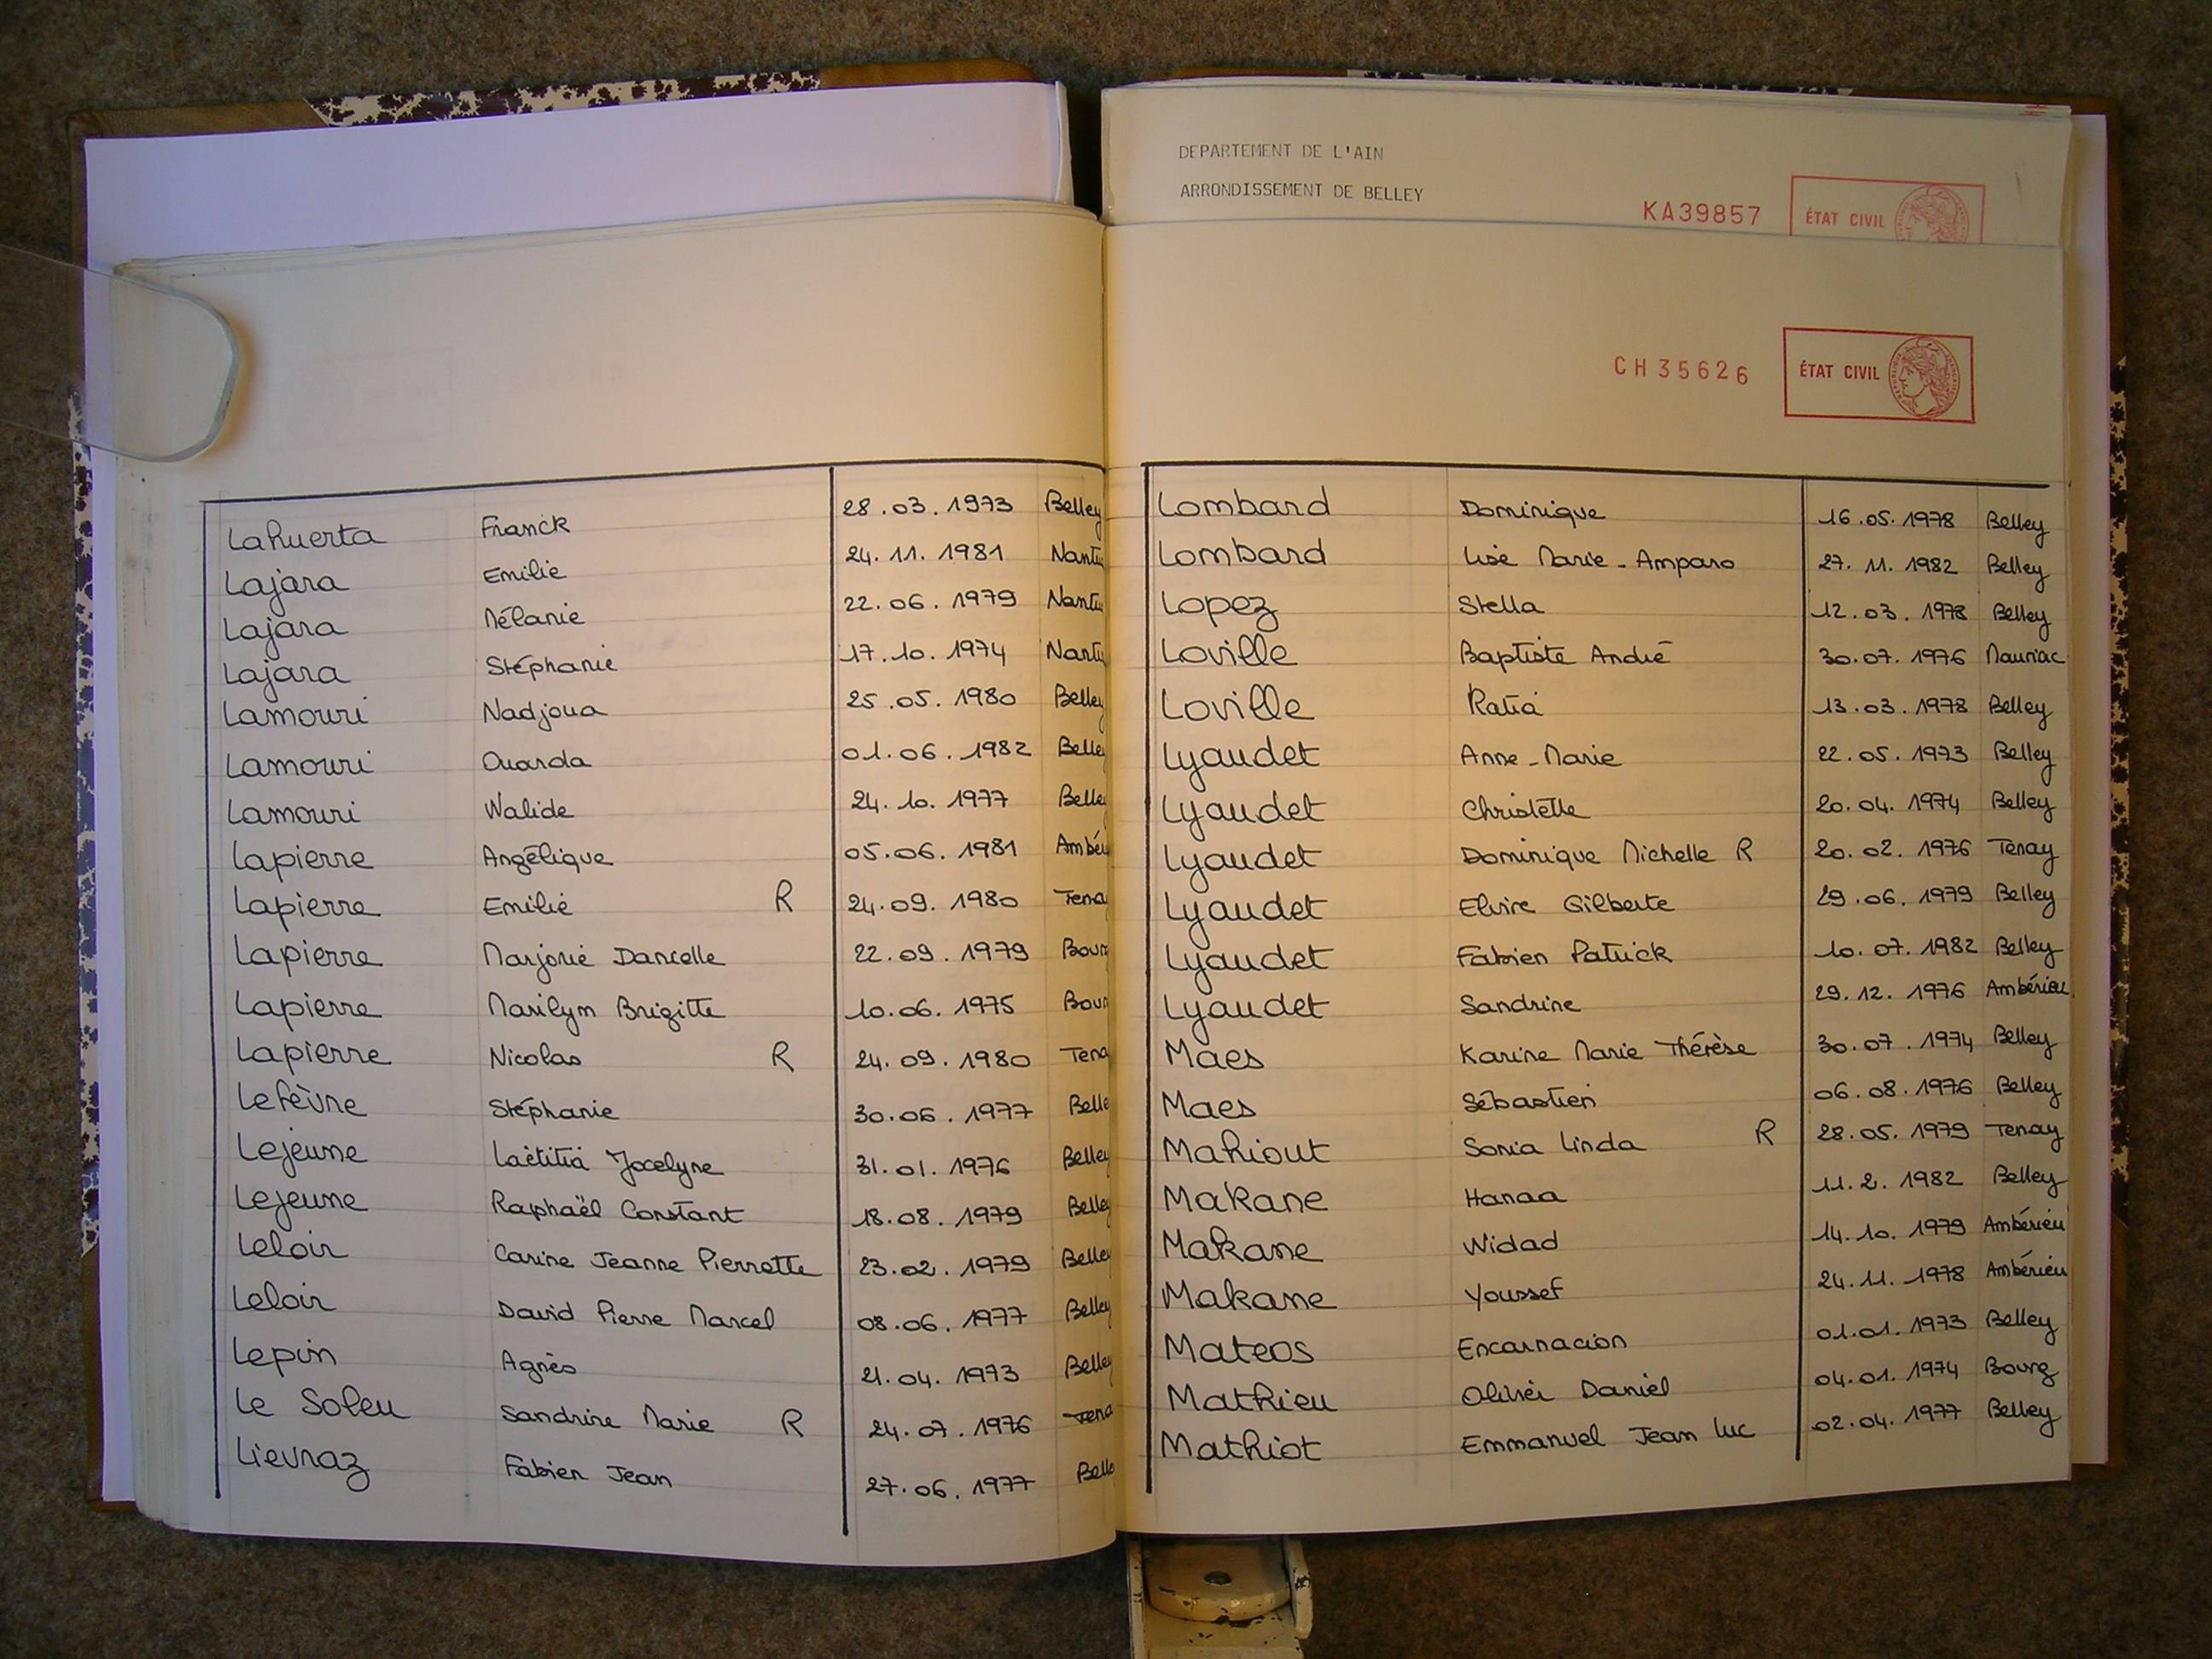 DEPARTEMENT DE L'AIN
ARRONDISSEMENT DE BELLEY
KA39857 ÉTAT CIVIL
CH35626 ÉTAT CIVIL
Lahuerta Franck 28.03.1973 Belley
Lajara Emilie 24.11.1981 Nantu
Lajara Mélanie 22.06.1979 Nantu
Lajara Stéphanie 17.10.1974 Nantu
Lamouri Nadjoua 25.05.1980 Belley
Lamouri Ouarda 01.06.1982 Belley
Lamouri Walide 24.10.1977 Belley
Lapierre Angélique 05.06.1981 Ambéri
Lapierre Emilie R 24.09.1980 Tenay
Lapierre Marjorie Danielle 22.09.1979 Bourg
Lapierre Marilym Brigitte 10.06.1975 Bourg
Lapierre Nicolas R 24.09.1980 Tena
Lefèvre Stéphanie 30.06.1977 Belle
Lejeune Laëtitia Jocelyne 31.01.1976 Belley
Lejeune Raphaël Constant 18.08.1979 Belley
Leloir Carine Jeanne Pierrette 23.02.1979 Belley
Leloir David Pierre Marcel 08.06.1977 Belley
Lepin Agnès 21.04.1973 Belley
Le Soleu Sandrine Marie R 24.07.1976 Tena
Lievraz Fabien Jean 27.06.1977 Belle
Lombard Dominique 16.05.1978 Belley
Lombard Lise Marie-Amparo 27.11.1982 Belley
Lopez Stella 12.03.1978 Belley
Loville Baptiste André 30.07.1976 Mauriac
Loville Katia 13.03.1978 Belley
Lyaudet Anne-Marie 22.05.1973 Belley
Lyaudet Christelle 20.04.1974 Belley
Lyaudet Dominique Michelle R 20.02.1976 Tenay
Lyaudet Elvire Gilberte 29.06.1979 Belley
Lyaudet Fabien Patrick 10.07.1982 Belley
Lyaudet Sandrine 29.12.1976 Ambérieu
Maes Karine Marie Thérèse 30.07.1974 Belley
Maes Sébastien 06.08.1976 Belley
Mahiout Sonia Linda R 28.05.1979 Tenay
Makane Hanaa 11.2.1982 Belley
Makane Widad 14.10.1979 Ambérieu
Makane Youssef 24.11.1978 Ambérieu
Mateos Encarnacion 01.01.1973 Belley
Mathieu Olivier Daniel 04.01.1974 Bourg
Mathiot Emmanuel Jean Luc 02.04.1977 Belley